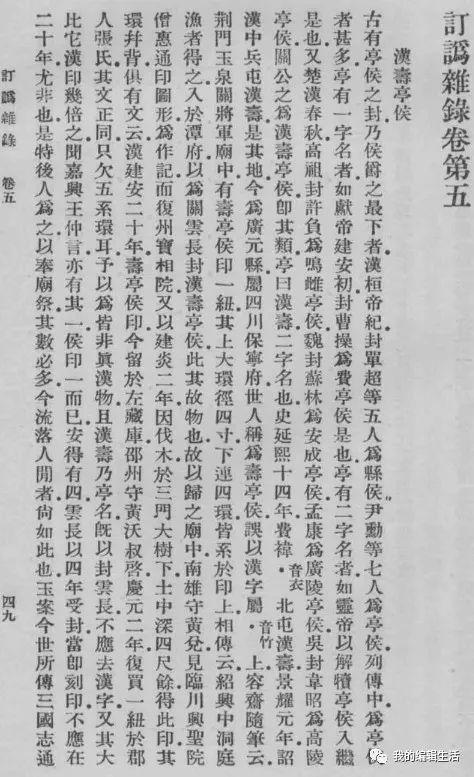 訂譌雜錄卷第五
漢壽亭侯
古有亭侯之封乃侯爵之最下者漢桓帝紀封單超等五人爲縣侯尹勳等七人爲亭侯列傳中爲亭
者甚多亭有一字名者如獻帝建安初封曹操爲費亭侯是也亭有二字名者如靈帝以解犢亭侯入繼
是也又楚漢春秋高祖封許負爲鳴雌亭侯魏封蘇林爲安成亭侯孟康爲廣陵亭侯吳封韋昭爲高陵
亭侯關公之爲漢壽亭侯卽其類亭曰漢壽二字名也史延熙十四年費禕音衣。北屯漢壽景耀元年詔
漢中兵屯漢壽是其地今爲廣元縣屬四川保寧府世人稱爲壽亭侯誤以漢字屬音竹。上容齋隨筆云
荆門玉泉關將軍廟中有壽亭侯印一紐其上大環徑四寸下連四環皆系於印上相傳云紹興中洞庭
漁者得之入於潭府以爲關雲長封漢壽亭侯此其故物也故以歸之廟中南雄守黃兌見臨川興聖院
僧惠通印圖形爲作記而復州寶相院又以建炎二年因伐木於三門大樹下土中深四尺餘得此印其
環幷背俱有文云漢建安二十年壽亭侯印今留於左藏庫邵州守黃沃叔啓慶元二年復買一紐於郡
人張氏其文正同只欠五系環耳予以爲皆非眞漢物且漢壽乃亭名旣以封雲長不應去漢字又其大
比它漢印幾倍之聞嘉興王仲言亦有其一侯印一而已安得有四雲長以四年受封當卽刻印不應在
二十年尤非也是特後人爲之以奉廟祭其數必多今流落人閒者尙如此也玉案今世所傳三國志通
訂譌雜錄 卷五
四九
我的编辑生活